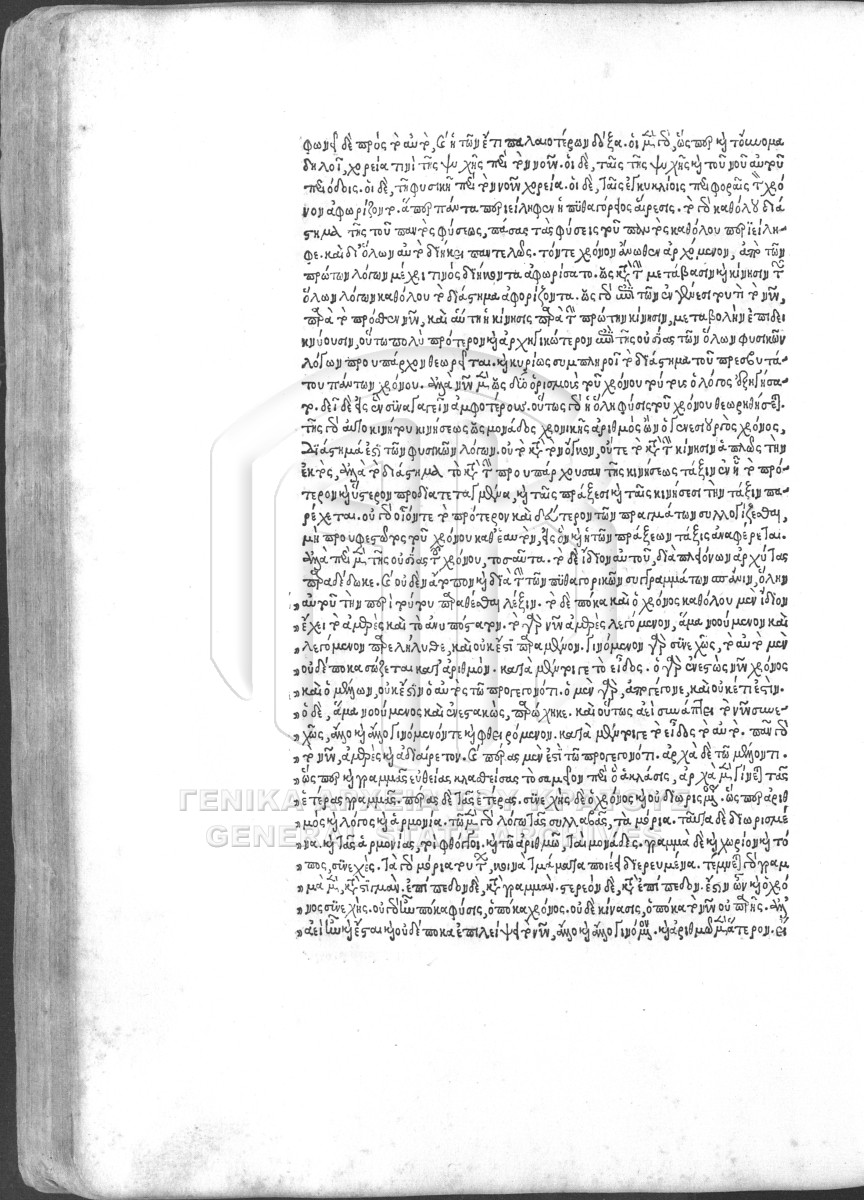 φωνεῖ δὲ πρὸς τὸ αὐτὸ, καὶ ἡ τῶν ἔτι παλαιοτέρων δόξα. οἱ μὲν γὰρ, ὥσπερ καὶ τοὔνομα
δηλοῖ, χορεία τινὶ τῆς ψυχῆς περὶ τὸν νοῦν. οἱ δὲ, ταῖς τῆς ψυχῆς καὶ τοῦ νοῦ αὐτοῦ
περιόδοις. οἱ δὲ, τῇ φυσικῇ περὶ τὸν νοῦν χορεία. οἱ δὲ, ταῖς ἐγκυκλίοις περιφοραῖς τὸν χρό-
νον ἀφωρίζοντο. ἅπερ πάντα περιείληφεν ἡ πυθαγόρειος αἵρεσις. τὸ γὰρ καθόλου διά
στημα τῆς τοῦ παντὸς φύσεως, πάσας τὰς φύσεις τοῦ παντὸς καθόλου περιείλη-
φε. καὶ δι' ὅλων αὐτὸ διήκει παντελῶς. τόν τε χρόνον ἄνωθεν ἀρχόμενον, ἀπὸ τῶν
πρώτων λόγων μέχρι τινὸς διήκοντα ἀφωρίσατο. ὡς κατὰ τὴν μετάβασιν καὶ κίνησιν τῶν
ὅλων λόγων καθόλου τὸ διάστημα ἀφορίζοντα. ὡς γὰρ ἐπὶ τῶν ἐν γενέσει τουτὶ τὸ νῦν,
παρὰ τὸ πρόσθεν νῦν, καὶ αὕτη ἡ κίνησις παρὰ τὴν πρώτην κίνησιν, μεταβολὴν ἐπιδει
κνύουσιν, οὕτω πολὺ πρότερον καὶ ἀρχηγικώτερον ἐπὶ τῆς οὐσίας τῶν ὅλων φυσικῶν
λόγων προυπάρχον θεωρεῖται. καὶ κυρίως συμπληροῖ τὸ διάστημα τοῦ πρεσβυτά-
του πάντων χρόνου. ἀλλὰ νῦν μὲν ὡς δύο ὁρισμοὺς τοῦ χρόνου τούτους ὁ λόγος ἐξηγήσα-
το. δεῖ δὲ εἰς ἓν συναγαγεῖν ἀμφοτέρους. οὕτως γὰρ ἡ ὅλη φύσις τοῦ χρόνου θεωρηθήσεται.
τῆς γὰρ αὐτοκινήτου κινήσεως ὡς μονάδος χρονικῆς ἀριθμὸς ὢν ὁ γενεσιουργὸς χρόνος,
διάστημά ἐστι τῶν φυσικῶν λόγων. οὔτε κατὰ τὸν ὄγκον, οὔτε τὸ κατὰ τὴν κίνησιν ἁπλῶς τὴν
ἐκτὸς, ἀλλὰ τὸ διάστημα τὸ κατὰ τὴν προυπάρχουσαν τῆς κινήσεως τάξιν ἐν ᾗ τὸ πρό-
τερον καὶ ὕστερον προδιατεταγμένα, καὶ ταῖς πράξεσι καὶ ταῖς κινήσεσι τὴν τάξιν πα-
ρέχεται. οὐ γὰρ οἷόν τε τὸ πρότερον καὶ δεύτερον τῶν πραγμάτων συλλογίζεσθαι,
μὴ προυφεστῶτος τοῦ χρόνου καθ' ἑαυτὸν, εἰς ὃν καὶ ἡ τῶν πράξεων τάξις ἀναφέρεται.
ἀλλὰ περὶ μὲν τῆς οὐσίας τοῦ χρόνου, τοσαῦτα. τὸ δὲ ἴδιον αὐτοῦ, διὰ πλειόνων ἀρχύτας
παραδέδωκε. καὶ οὐδὲν ἄτοπον καὶ διὰ τὴν τῶν πυθαγορικῶν συγγραμμάτων σπάνιν, ὅλην
αὐτοῦ τὴν περὶ τούτου παραθέσθαι λέξιν. τὸ δέ ποκα καὶ ὁ χρόνος καθόλου μὲν ἴδιον
ἔχει τὸ ἀμερὲς καὶ τὸ ἀνυπόστατον. τὸ γὰρ νῦν ἀμερὲς λεγόμενον, ἅμα νοούμενον καὶ
λεγόμενον παρελήλυθε, καὶ οὐκ ἔστι παραμένον. γινόμενον γὰρ συνεχῶς, τὸ αὐτὸ μὲν
οὐδέποκα σώζεται κατ' ἀριθμόν. κατὰ μέντοιγε τὸ εἶδος. ὁ γὰρ ἐνεστὼς νῦν χρόνος
καὶ ὁ μέλλων, οὐκ ἔστιν ὁ αὐτὸς τῷ προγεγονότι. ὁ μὲν γὰρ, ἀπογέγονε, καὶ οὐκέτι ἐστίν.
ὁ δὲ, ἅμα νοούμενος καὶ ἐνεστακὼς, παρώχηκε. καὶ οὕτως ἀεὶ συνάπτει τὸ νῦν συνε-
χῶς, ἄλλο καὶ ἄλλο γινόμενόν τε καὶ φθειρόμενον. κατὰ μέντοιγε τὸ εἶδος τὸ αὐτό. πᾶν γὰρ
τὸ νῦν, ἀμερὲς καὶ ἀδιαίρετον. καὶ πέρας μέν ἐστι τῷ προγεγονότι. ἀρχὰ δὲ τῷ μέλλοντι.
ὥσπερ καὶ γραμμᾶς εὐθείας κλασθείσας τὸ σαμεῖον περὶ ὃ ἁ κλάσις, ἀρχὰ μὲν γίνεται τᾶς
ἑτέρας γραμμᾶς. πέρας δὲ τᾶς ἑτέρας. συνεχὴς δὲ ὁ χρόνος καὶ οὐ διωρισμένος. ὥσπερ ἀριθ
μὸς καὶ λόγος καὶ ἁρμονία. τῶ μὲν γὰρ λόγω τᾶς συλλαβᾶς, τὰ μόρια. ταῦτα δὲ διωρισμέ
να. καὶ τᾶς ἁρμονίας, τοὶ φθόγγοι. καὶ τῶ ἀριθμῶ, ταὶ μονάδες. γραμμὰ δὲ καὶ χωρίον καὶ τό
πος, συνεχές. τὰ γὰρ μόρια τούτων, κοινὰ τμάματα ποιεῖ διαιρεύμενα. τέμνεται γὰρ γραμ
μὰ μὲν, κατὰ στιγμάν. ἐπίπεδον δὲ, κατὰ γραμμάν. στερεὸν δὲ, κατ' ἐπίπεδον. ἔστιν ὦν καὶ ὁ χρό
νος συνεχής. οὐ γὰρ ἦν ποκα φύσις, ὅποκα χρόνος. οὐδὲ κίνασις, ὅποκα τὸ νῦν οὐ παρῆς. ἀλλ'
ἀεὶ ἦν καὶ ἔσται καὶ οὐδέποκα ἐπιλείψει τὸ νῦν, ἄλλο καὶ ἄλλο γινόμενον. καὶ ἀριθμῷ μὲν ἅτερον. εἴ
ΓΕΝΙΚΑ ΑΡΧΕΙΑ ΤΟΥ ΚΡΑΤΟΥΣ
GENERAL STATE ARCHIVES